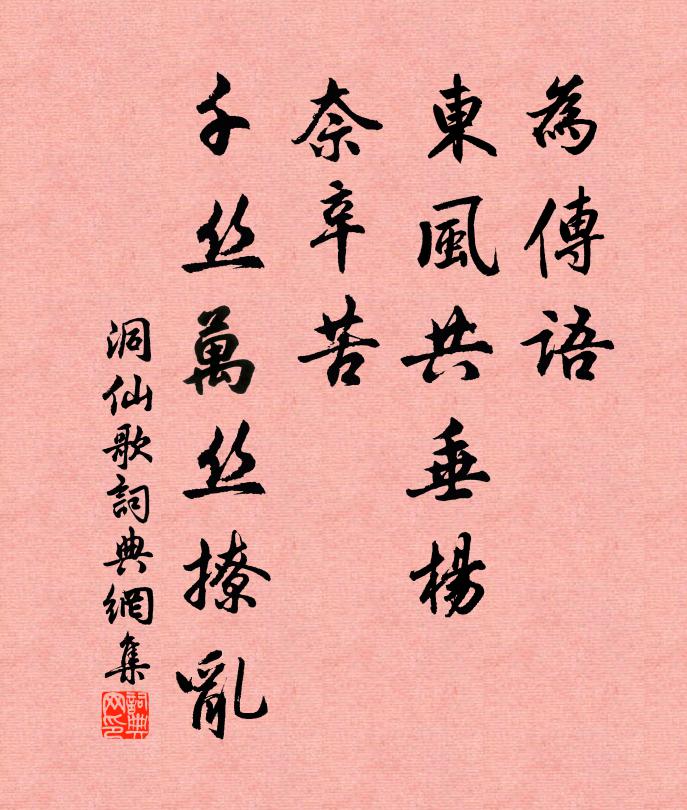 為傳語
東風共垂楊
奈辛苦
千丝萬丝撩亂
洞仙歌詞典網集
詞典网印